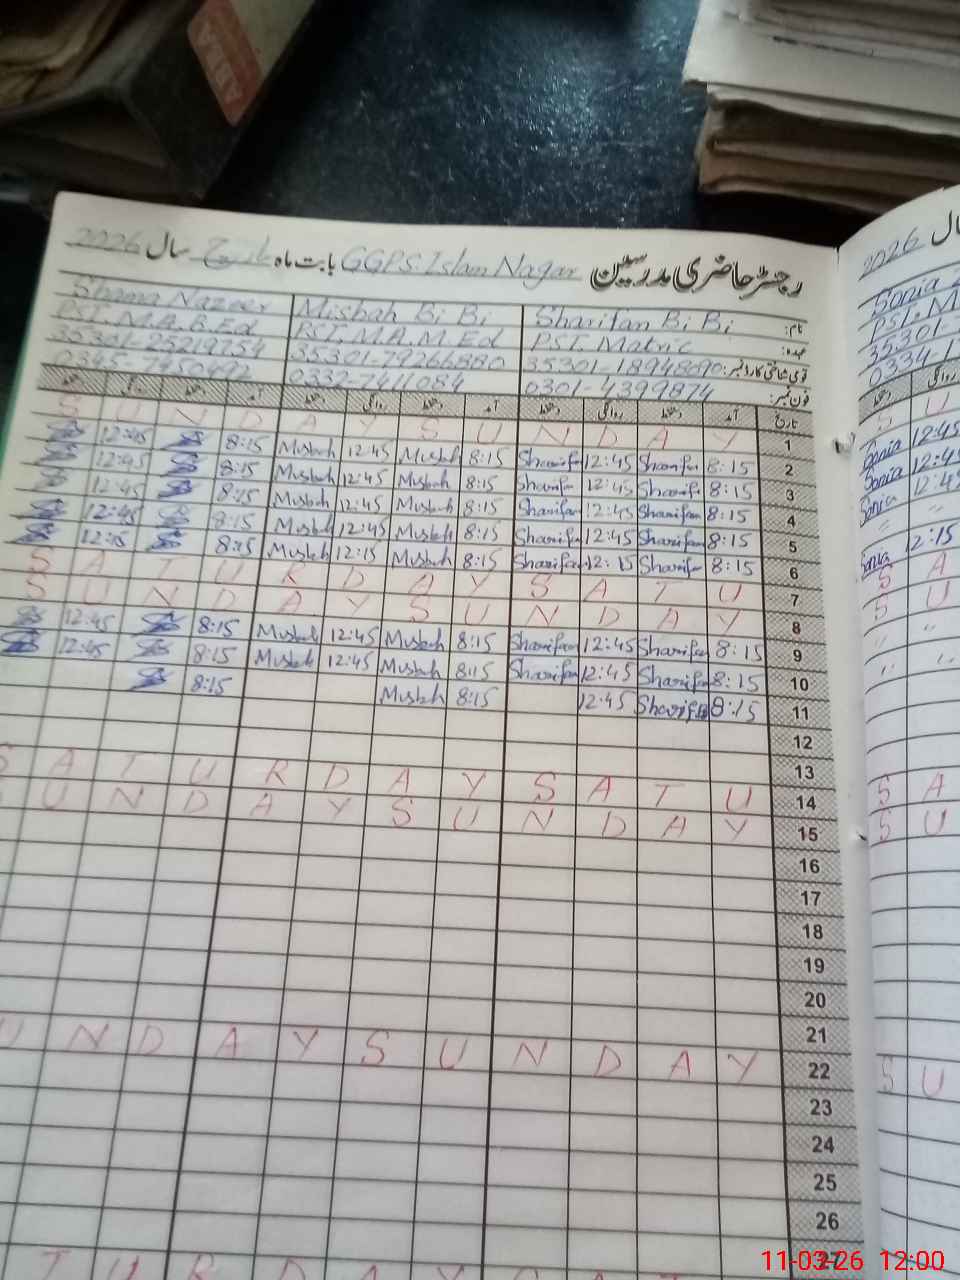 رجسٹر حاضری مدرسین GGPS. Islam Nagar بابت ماہ مارچ سال 2026
نام: Sharifan Bi Bi Misbah Bi Bi Shama Nazeer
عہدہ: PST. Matric PST. M.A. M. Ed PST. M.A. B.Ed
قومی شناختی کارڈ نمبر: 35301-18948090 35301-79266880 35301-25219754
فون نمبر: 0301-4399874 0332-7411084 0345-7450492
تاریخ آمد دستخط روانگی دستخط آمد دستخط روانگی دستخط آمد دستخط روانگی دستخط
1 S U N D A Y S U N D A Y
2 8:15 Sharifan 12:45 Sharifan 8:15 Misbah 12:45 Misbah 8:15 12:45
3 8:15 Sharifan 12:45 Sharifan 8:15 Misbah 12:45 Misbah 8:15 12:45
4 8:15 Sharifan 12:45 Sharifan 8:15 Misbah 12:45 Misbah 8:15 12:45
5 8:15 Sharifan 12:45 Sharifan 8:15 Misbah 12:45 Misbah 8:15 12:45
6 8:15 Sharifan 12:15 Sharifan 8:15 Misbah 12:15 Misbah 8:15 12:15
7 S A T U R D A Y S A T U
8 S U N D A Y S U N D A Y
9 8:15 Sharifan 12:45 Sharifan 8:15 Misbah 12:45 Misbah 8:15 12:45
10 8:15 Sharifan 12:45 Sharifan 8:15 Misbah 12:45 Misbah 8:15 12:45
11 8:15 Sharifan 12:45 8:15 Misbah 8:15
12
13
14 S A T U R D A Y S A T U
15 S U N D A Y S U N D A Y
16
17
18
19
20
21
22 U N D A Y S U N D A Y
23
24
25
26
27
T U R D A Y S A T U
2026
Sonia
PST. M
35301-
0334-1
روانگی دستخط
S U
Sonia 12:45
Sonia 12:45
Sonia 12:45
" "
Sonia 12:15
S A
S U
" "
" "
S A
S U
S U
11-03-26 12:00